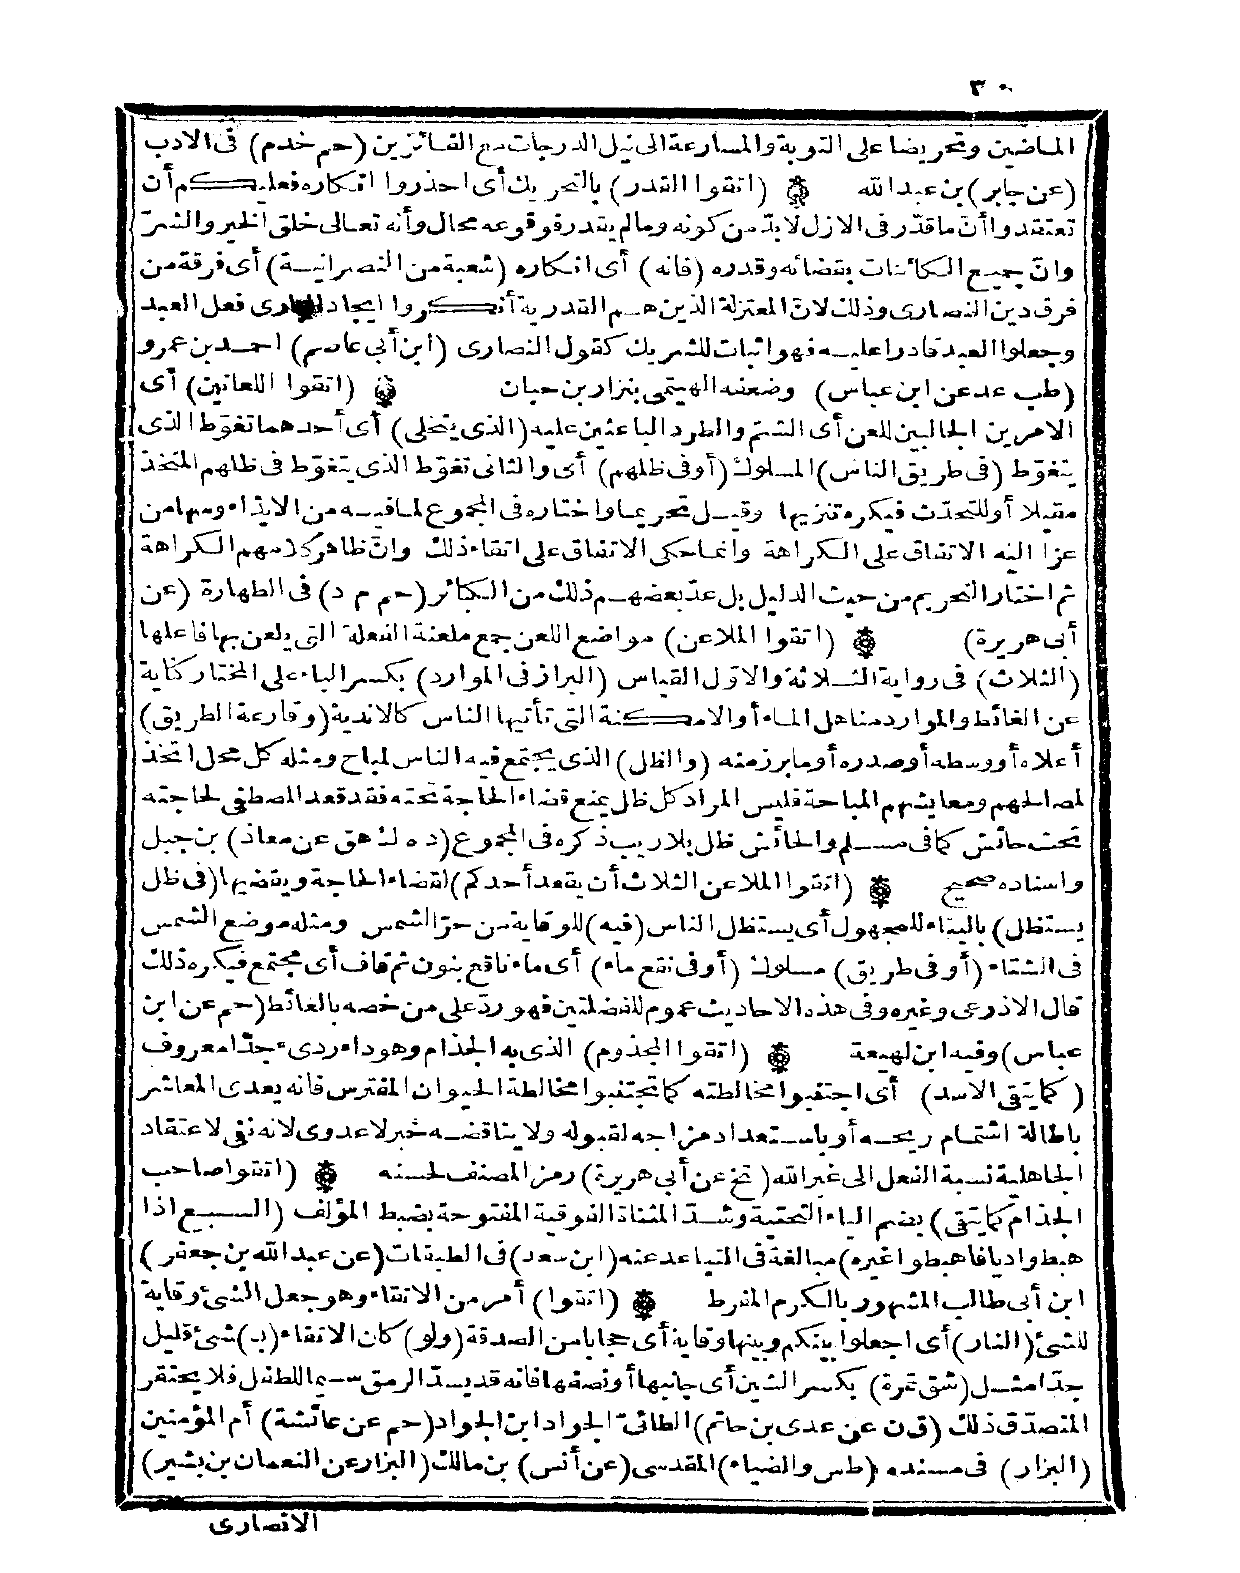 ٣٠
الماضين وتحريضا على التوبة والمسارعة الى نيل الدرجات مع الفائزين (حم خدم) فى الادب
(عن جابر) بن عبد الله ۞ (اتقوا القدر) بالتحريك أى احذروا انكاره فعليكم أن
تعتقدوا أن ما قدّر فى الازل لا بدّ من كونه وما لم يقدر فوقوعه محال وأنه تعالى خلق الخير والشرّ
وانّ جميع الكائنات بقضائه وقدره (فانه) أى انكاره (شعبة من النصرانية) أى فرقة من
فرق دين النصارى وذلك لانّ المعتزلة الذين هم القدرية أنكروا ايجاد البارى فعل العبد
وجعلوا العبد قادرا عليه فهو اثبات للشريك كقول النصارى (ابن أبى عاصم) احمد بن عمرو
(طب عد عن ابن عباس) وضعفه الهيتمى بنزار بن حبان ۞ (اتقوا اللعانين) أى
الامرين الجالبين للعن أى الشتم والطرد الباعثين عليه (الذى يتخلى) أى أحدهما تغوّط الذى
يتغوّط (فى طريق الناس) المسلوك (أو فى ظلهم) أى والثانى تغوّط الذى يتغوّط فى ظلهم المتخذ
مقيلا أو للتحدّث فيكره تنزيها وقيل تحريما واختاره فى المجموع لما فيه من الايذاء ومنها من
عزا اليه الاتفاق على الكراهة وانما حكى الاتفاق على اتقاء ذلك وانّ ظاهر كلامهم الكراهة
ثم اختار التحريم من حيث الدليل بل عدّ بعضهم ذلك من الكبائر (حم م د) فى الطهارة (عن
أبى هريرة) ۞ (اتقوا الملاعن) مواضع اللعن جمع ملعنة الفعلة التى يلعن بها فاعلها
(الثلاث) فى رواية الثلاثة والاوّل القياس (البراز فى الموارد) بكسر الباء على المختار كناية
عن الغائط والموارد مناهل الماء أو الامكنة التى تأتيها الناس كالاندية (وقارعة الطريق)
أعلاه أو وسطه أو صدره أو ما برز منه (والظل) الذى يجتمع فيه الناس لمباح ومثله كل محل اتخذ
لمصالحهم ومعايشهم المباحة فليس المراد كل ظل يمنع قضاء الحاجة تحته فقد قعد المصطفى لحاجته
تحت حائش كما فى مسلم والحائش ظل بلا ريب ذكره فى المجموع (د ه ك هق عن معاذ) بن جبل
واسناده صحيح ۞ (اتقوا الملاعن الثلاث أن يقعد أحدكم) لقضاء الحاجة ويقضيها (فى ظل
يستظل) بالبناء للمجهول أى يستظل الناس (فيه) للوقاية من حرّ الشمس ومثله موضع الشمس
فى الشتاء (أو فى طريق) مسلوك (أو فى نقع ماء) أى ماء ناقع بنون ثم قاف أى مجتمع فيكره ذلك
قال الاذرعى وغيره وفى هذه الاحاديث عموم للفضلتين فهو ردّ على من خصه بالغائط (حم عن ابن
عباس) وفيه ابن لهيعة ۞ (اتقوا المجذوم) الذى به الجذام وهو داء ردىء جدّا معروف
(كما يتقى الاسد) أى اجتنبوا مخالطته كما تجتنبوا مخالطة الحيوان المفترس فانه يعدى المعاشر
باطالة اشتمام ريحه أو باستعداد مزاجه لقبوله ولا يناقضه خبر لا عدوى لانه نفى لاعتقاد
الجاهلية نسبة الفعل الى غير الله (تخ عن أبى هريرة) رمز المصنف لحسنه ۞ (اتقوا صاحب
الجذام كما يتقى) بضم الياء التحتية وشدّ المثناة الفوقية المفتوحة بضبط المؤلف (السبع اذا
هبط واديا فاهبطوا غيره) مبالغة فى التباعد عنه (ابن سعد) فى الطبقات (عن عبد الله بن جعفر)
ابن أبى طالب المشهور بالكرم المفرط ۞ (اتقوا) أمر من الاتقاء وهو جعل الشئ وقاية
للشئ (النار) أى اجعلوا بينكم وبينها وقاية أى حجابا من الصدقة (ولو) كان الاتقاء (ب) شئ قليل
جدّا مثل (شق تمرة) بكسر الشين أى جانبها أو نصفها فانه قد يسدّ الرمق سيما للطفل فلا يحتقر
المتصدّق ذلك (ق ن عن عدى بن حاتم) الطائىّ الجواد ابن الجواد (حم عن عائشة) أم المؤمنين
(البزار) فى مسنده (طس والضياء) المقدسى (عن أنس) بن مالك (البزار عن النعمان بن بشير)
الانصارى